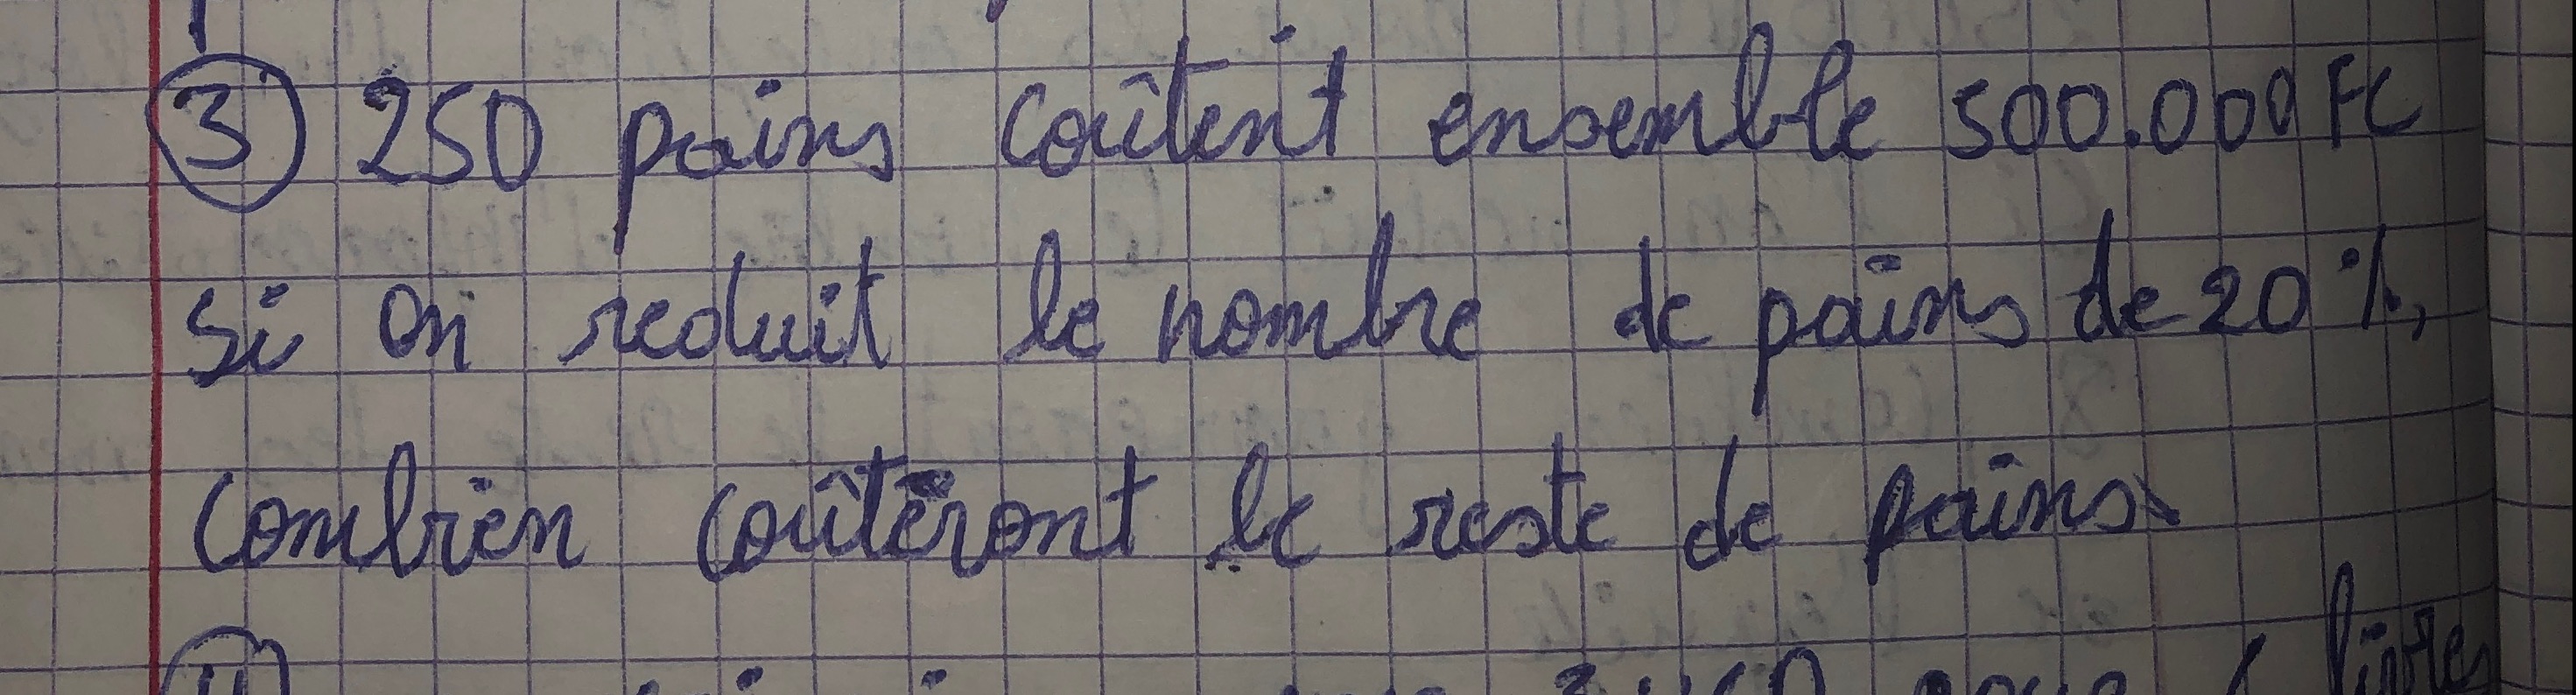 ③ 250 pains coûtent ensemble 500.000 FC
si on reduit le nombre de pains de 20 %,
Combien coûteront le reste de pains.
livres